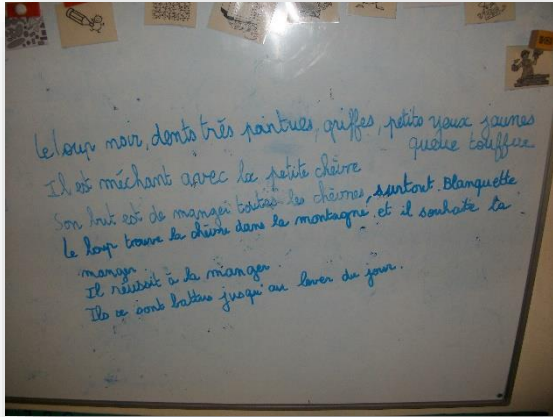 Le loup noir, dents très pointues, griffes, petits yeux jaunes
queue touffue
Il est méchant avec la petite chèvre
Son but est de manger toutes les chèvres, surtout Blanquette
Le loup trouve la chèvre dans la montagne et il souhaite la
manger
Il réussit à la manger
Ils se sont battus jusqu'au lever du jour.